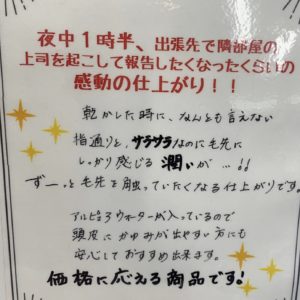 夜中1時半、出張先で隣部屋の
上司を起こして報告したくなったくらいの
感動の仕上がり！！
乾かした時に、なんとも言えない
指通りと、サラサラなのに毛先に
しっかり感じる潤いが…!!
ずーっと毛先を触っていたくなる仕上がりです。
アルピューウォーターが入っているので
頭皮にかゆみが出やすい方にも
安心しておすすめ出来ます。
価格に応える商品です!